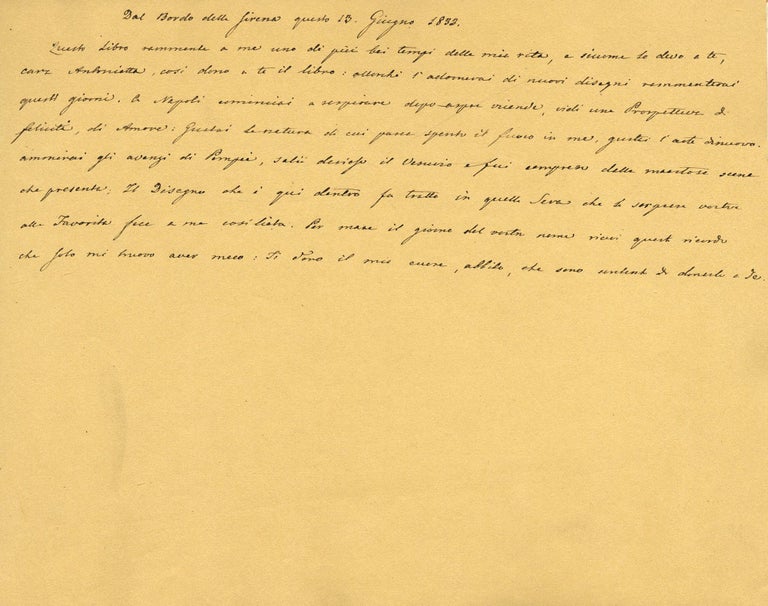 Dal Bordo della Sirena questo 13. Giugno 1832.
Questo Libro rammenta a me uno di più bei tempi della mia vita, e siccome lo devo a te,
cara Antonietta, così dono a te il libro: allorché l'adornerai di nuovi disegni rammenterai
questi giorni. A Napoli cominciai a respirare dopo aspre vicende, vidi una Prospettiva di
felicità, di Amore: Gustai la natura di cui parea spento il fuoco in me, gustai l'arte di nuovo.
ammirai gli avanzi di Pompei, salii il Vesuvio e fui compreso della maestosa scena
che presenta; Il Disegno che è qui dentro fu tratto in quella Sera che la sorpresa vostra
alla Favorita fece a me cosi lieta. Per mare il giorno del vostro nome ricevi questo ricordo
che solo mi truovo aver meco: Ti dono il mio cuore, abbilo, che sono contento di donarlo a Te.